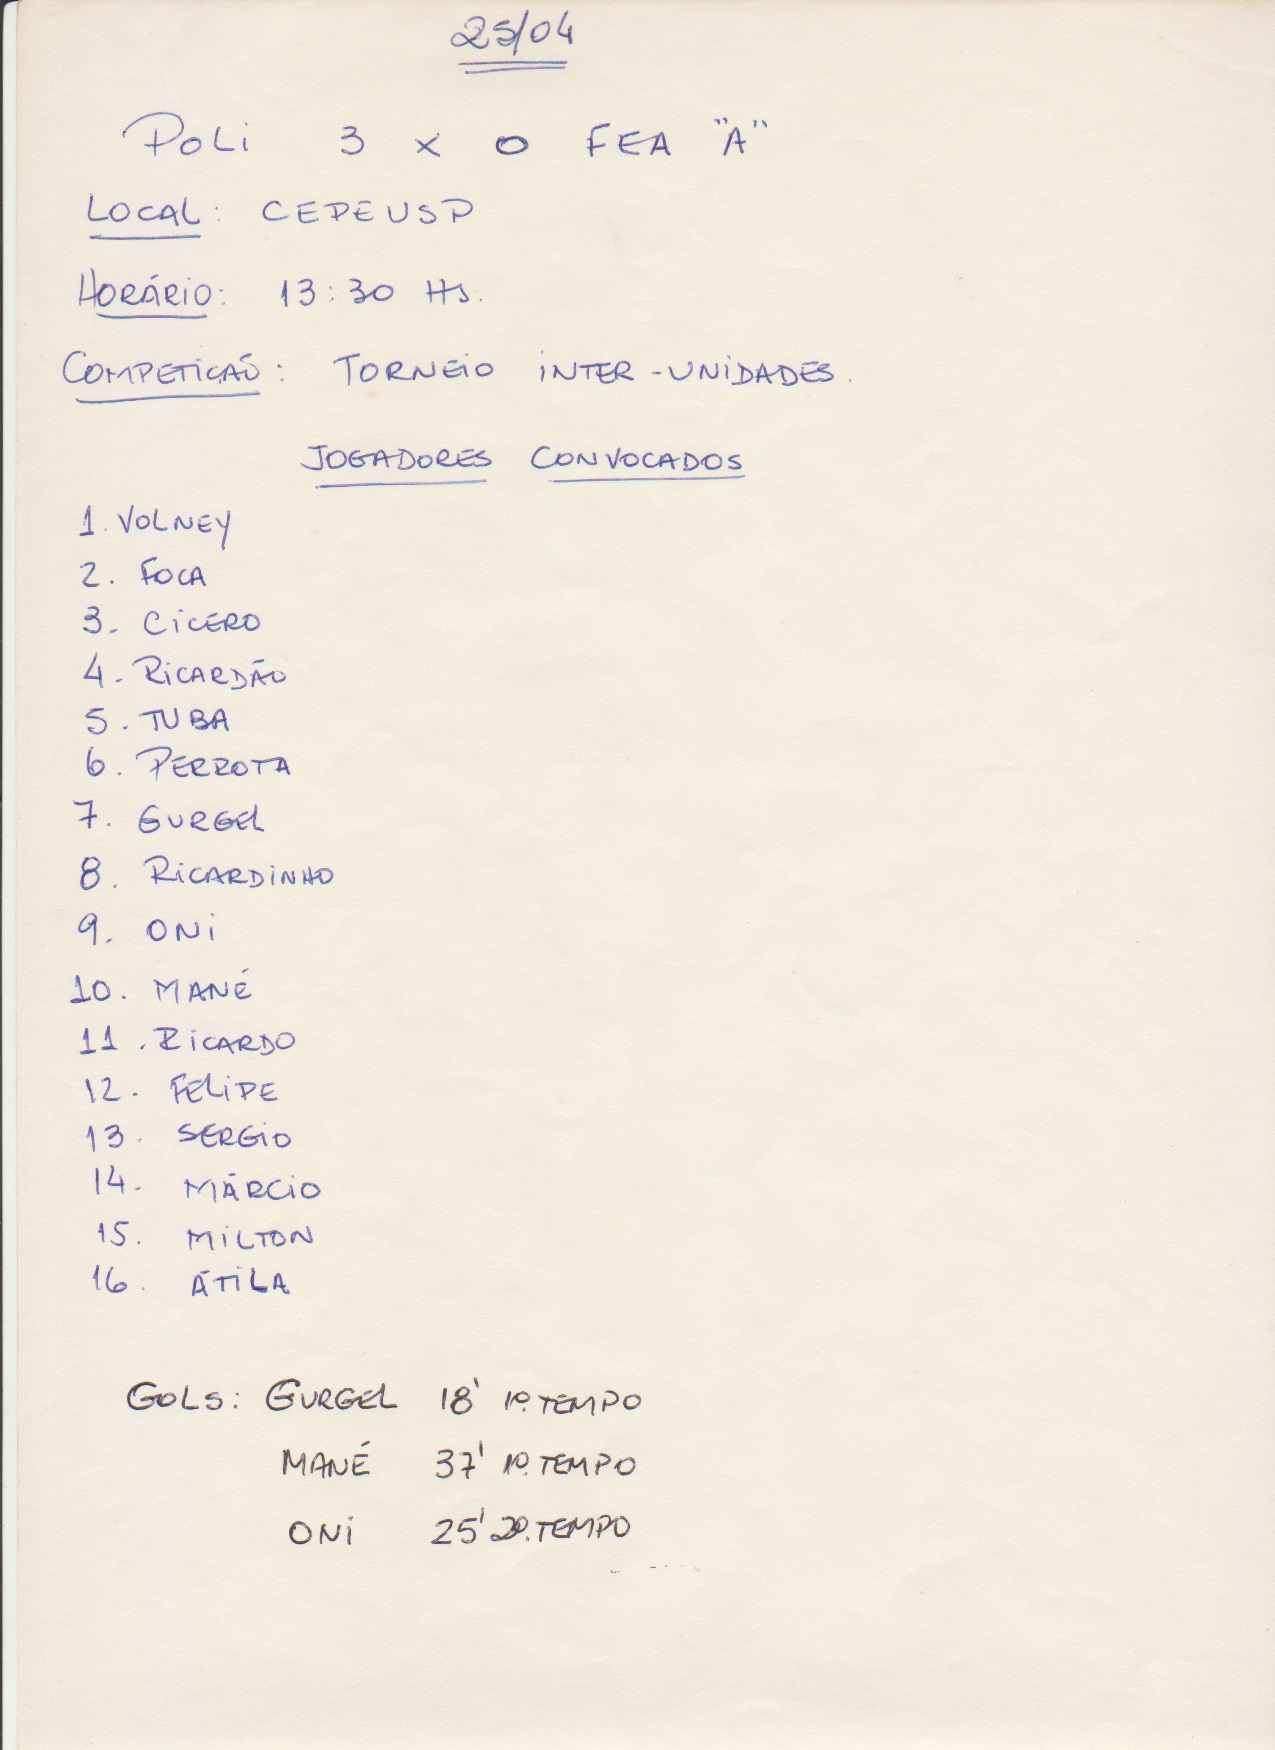 25/04
POLI 3 x 0 FEA "A"
LOCAL: CEPEUSP
HORÁRIO: 13:30 Hs.
COMPETIÇÃO: TORNEIO INTER-UNIDADES.
JOGADORES CONVOCADOS
1. VOLNEY
2. FOCA
3. CICERO
4. RICARDÃO
5. TUBA
6. PERROTA
7. GURGEL
8. RICARDINHO
9. ONI
10. MANÉ
11. RICARDO
12. FELIPE
13. SERGIO
14. MÁRCIO
15. MILTON
16. ÁTILA
GOLS: GURGEL 18' 1º. TEMPO
MANÉ 37' 1º. TEMPO
ONI 25' 2º. TEMPO